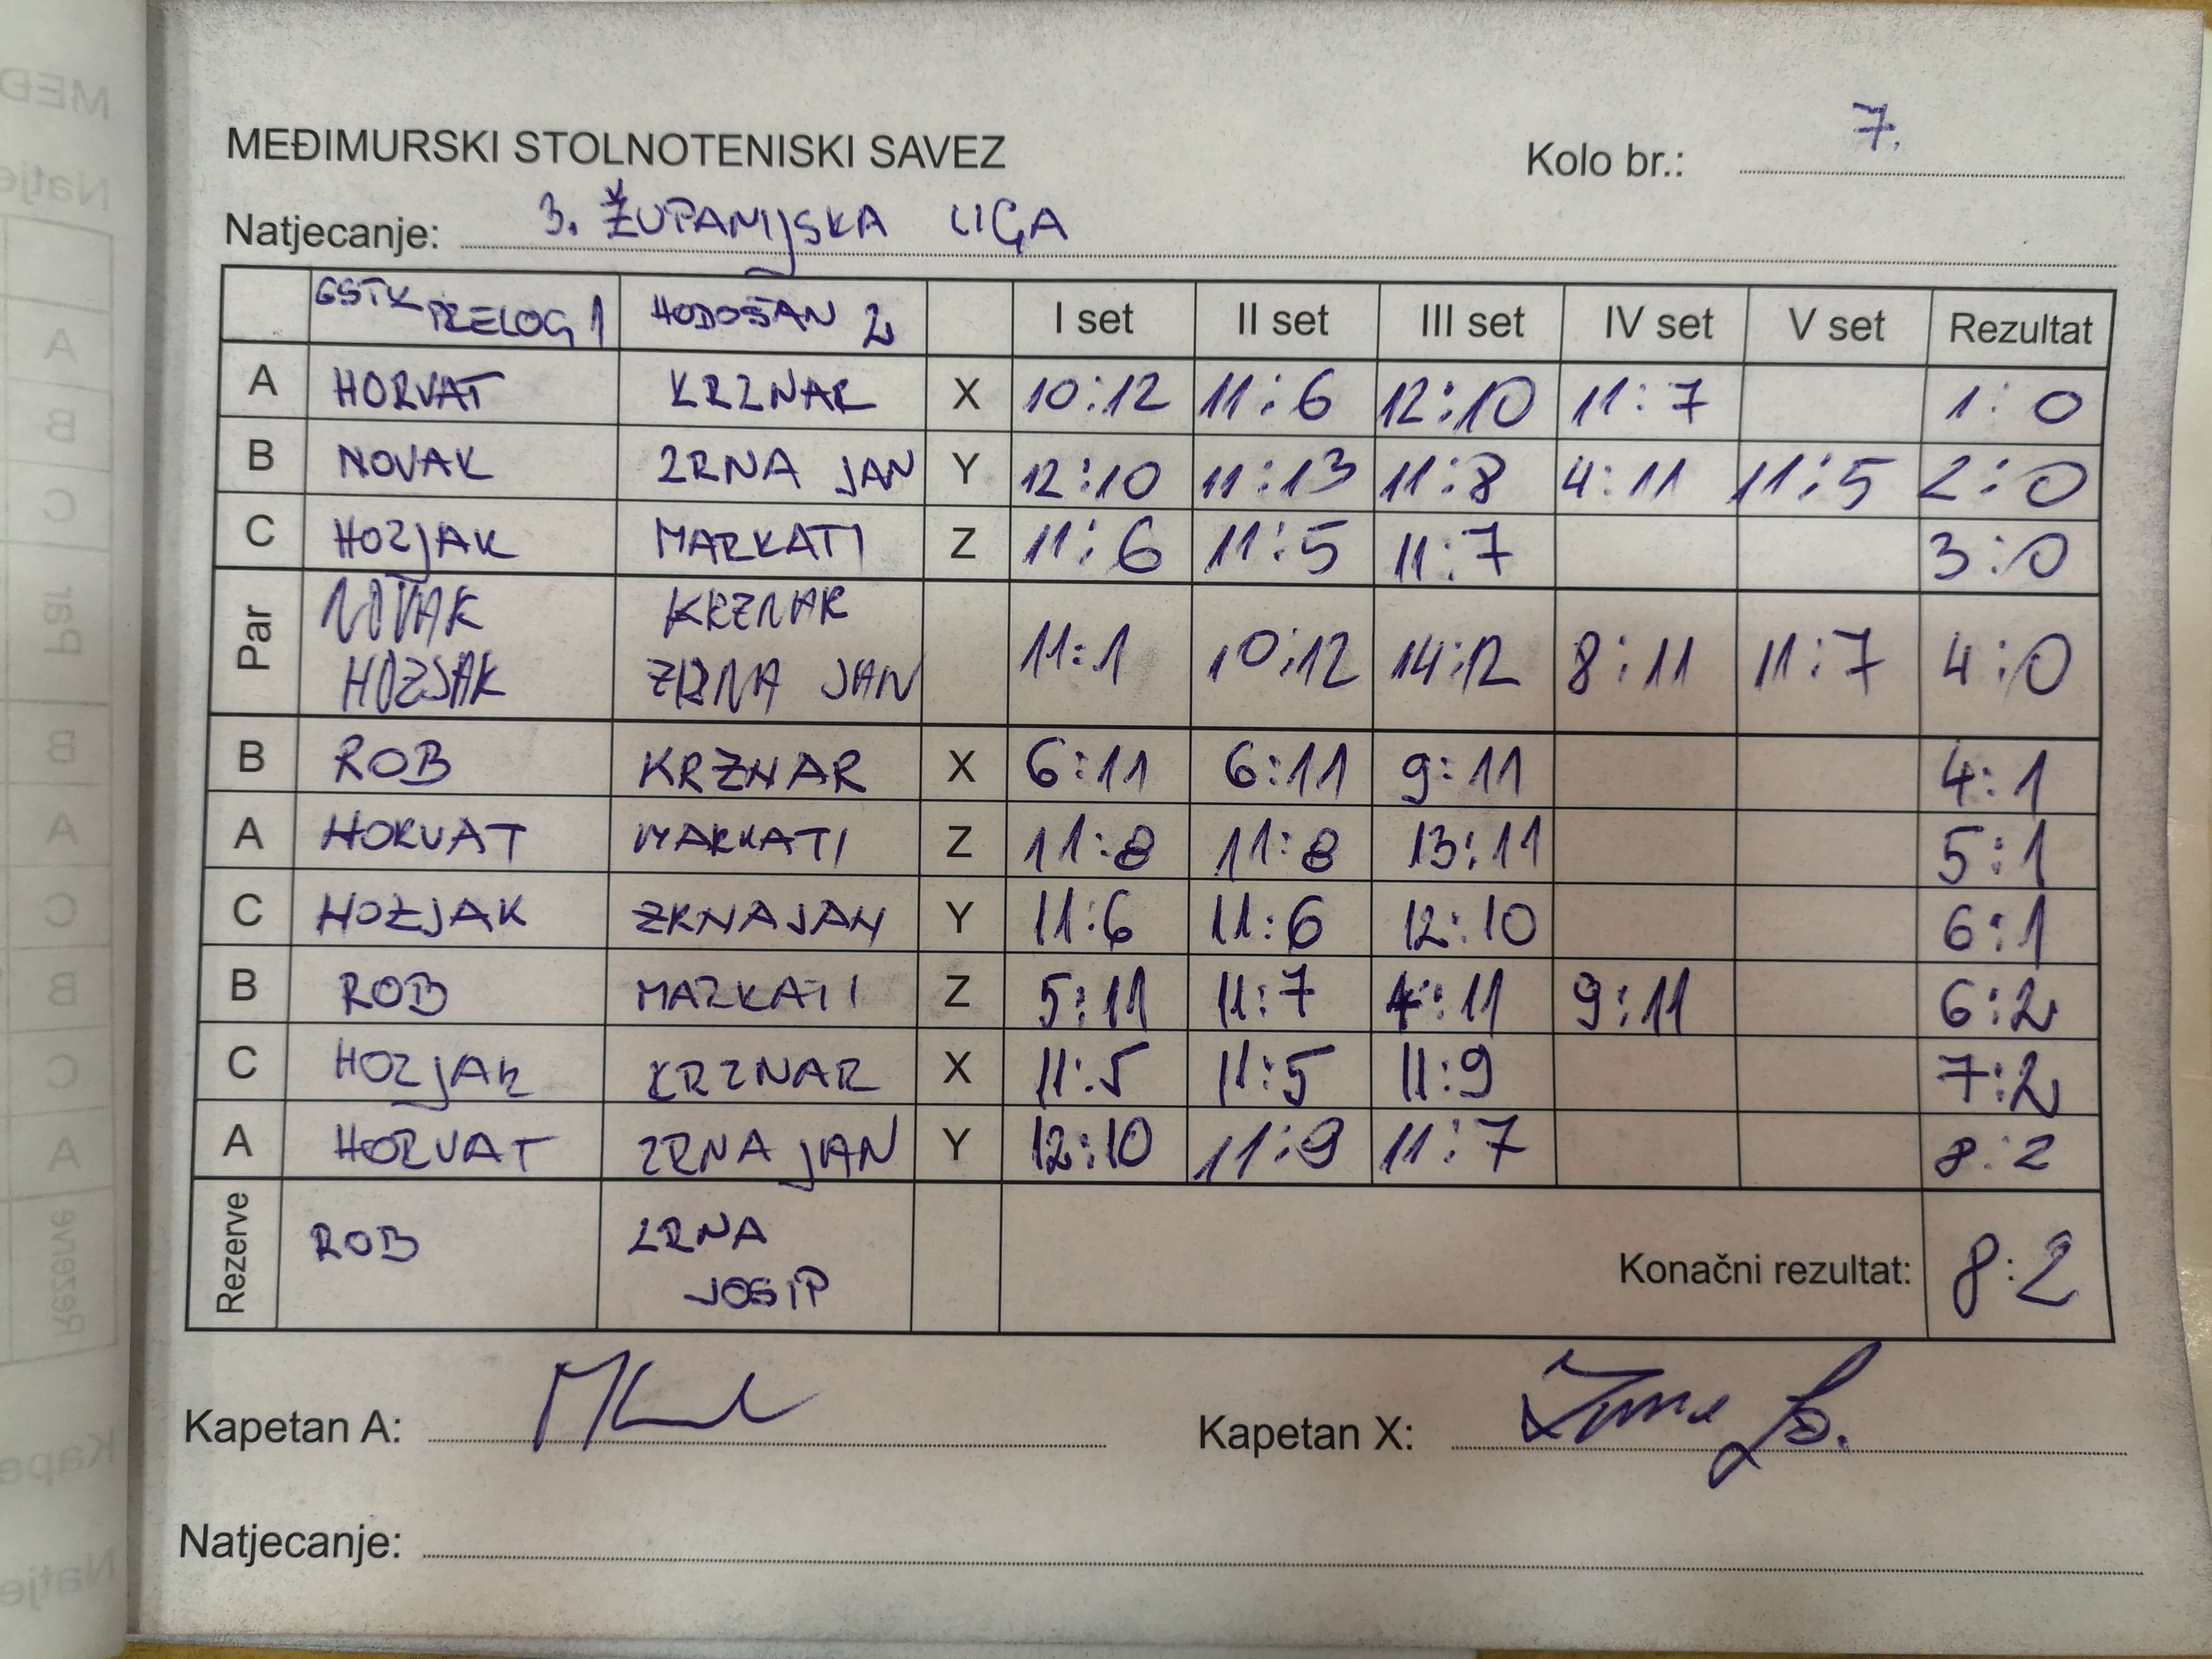 MEĐIMURSKI STOLNOTENISKI SAVEZ Kolo br.: 7.
Natjecanje: 3. ŽUPANIJSKA LIGA
GSTK PRELOG 1 HODOŠAN 2 I set II set III set IV set V set Rezultat
A HORVAT KRZNAR X 10:12 11:6 12:10 11:7 1:0
B NOVAK ZRNA JAN Y 12:10 11:13 11:8 4:11 11:5 2:0
C HOZJAK MARKATI Z 11:6 11:5 11:7 3:0
Par NOVAK KRZNAR 11:1 10:12 14:12 8:11 11:7 4:0
HOZJAK ZRNA JAN
B ROB KRZNAR X 6:11 6:11 9:11 4:1
A HORVAT MARKATI Z 11:8 11:8 13:11 5:1
C HOZJAK ZRNA JAN Y 11:6 11:6 12:10 6:1
B ROB MARKATI Z 5:11 11:7 4:11 9:11 6:2
C HOZJAK KRZNAR X 11:5 11:5 11:9 7:2
A HORVAT ZRNA JAN Y 12:10 11:9 11:7 8:2
Rezerve ROB ZRNA JOSIP Konačni rezultat: 8:2
Kapetan A: Kapetan X:
Natjecanje: